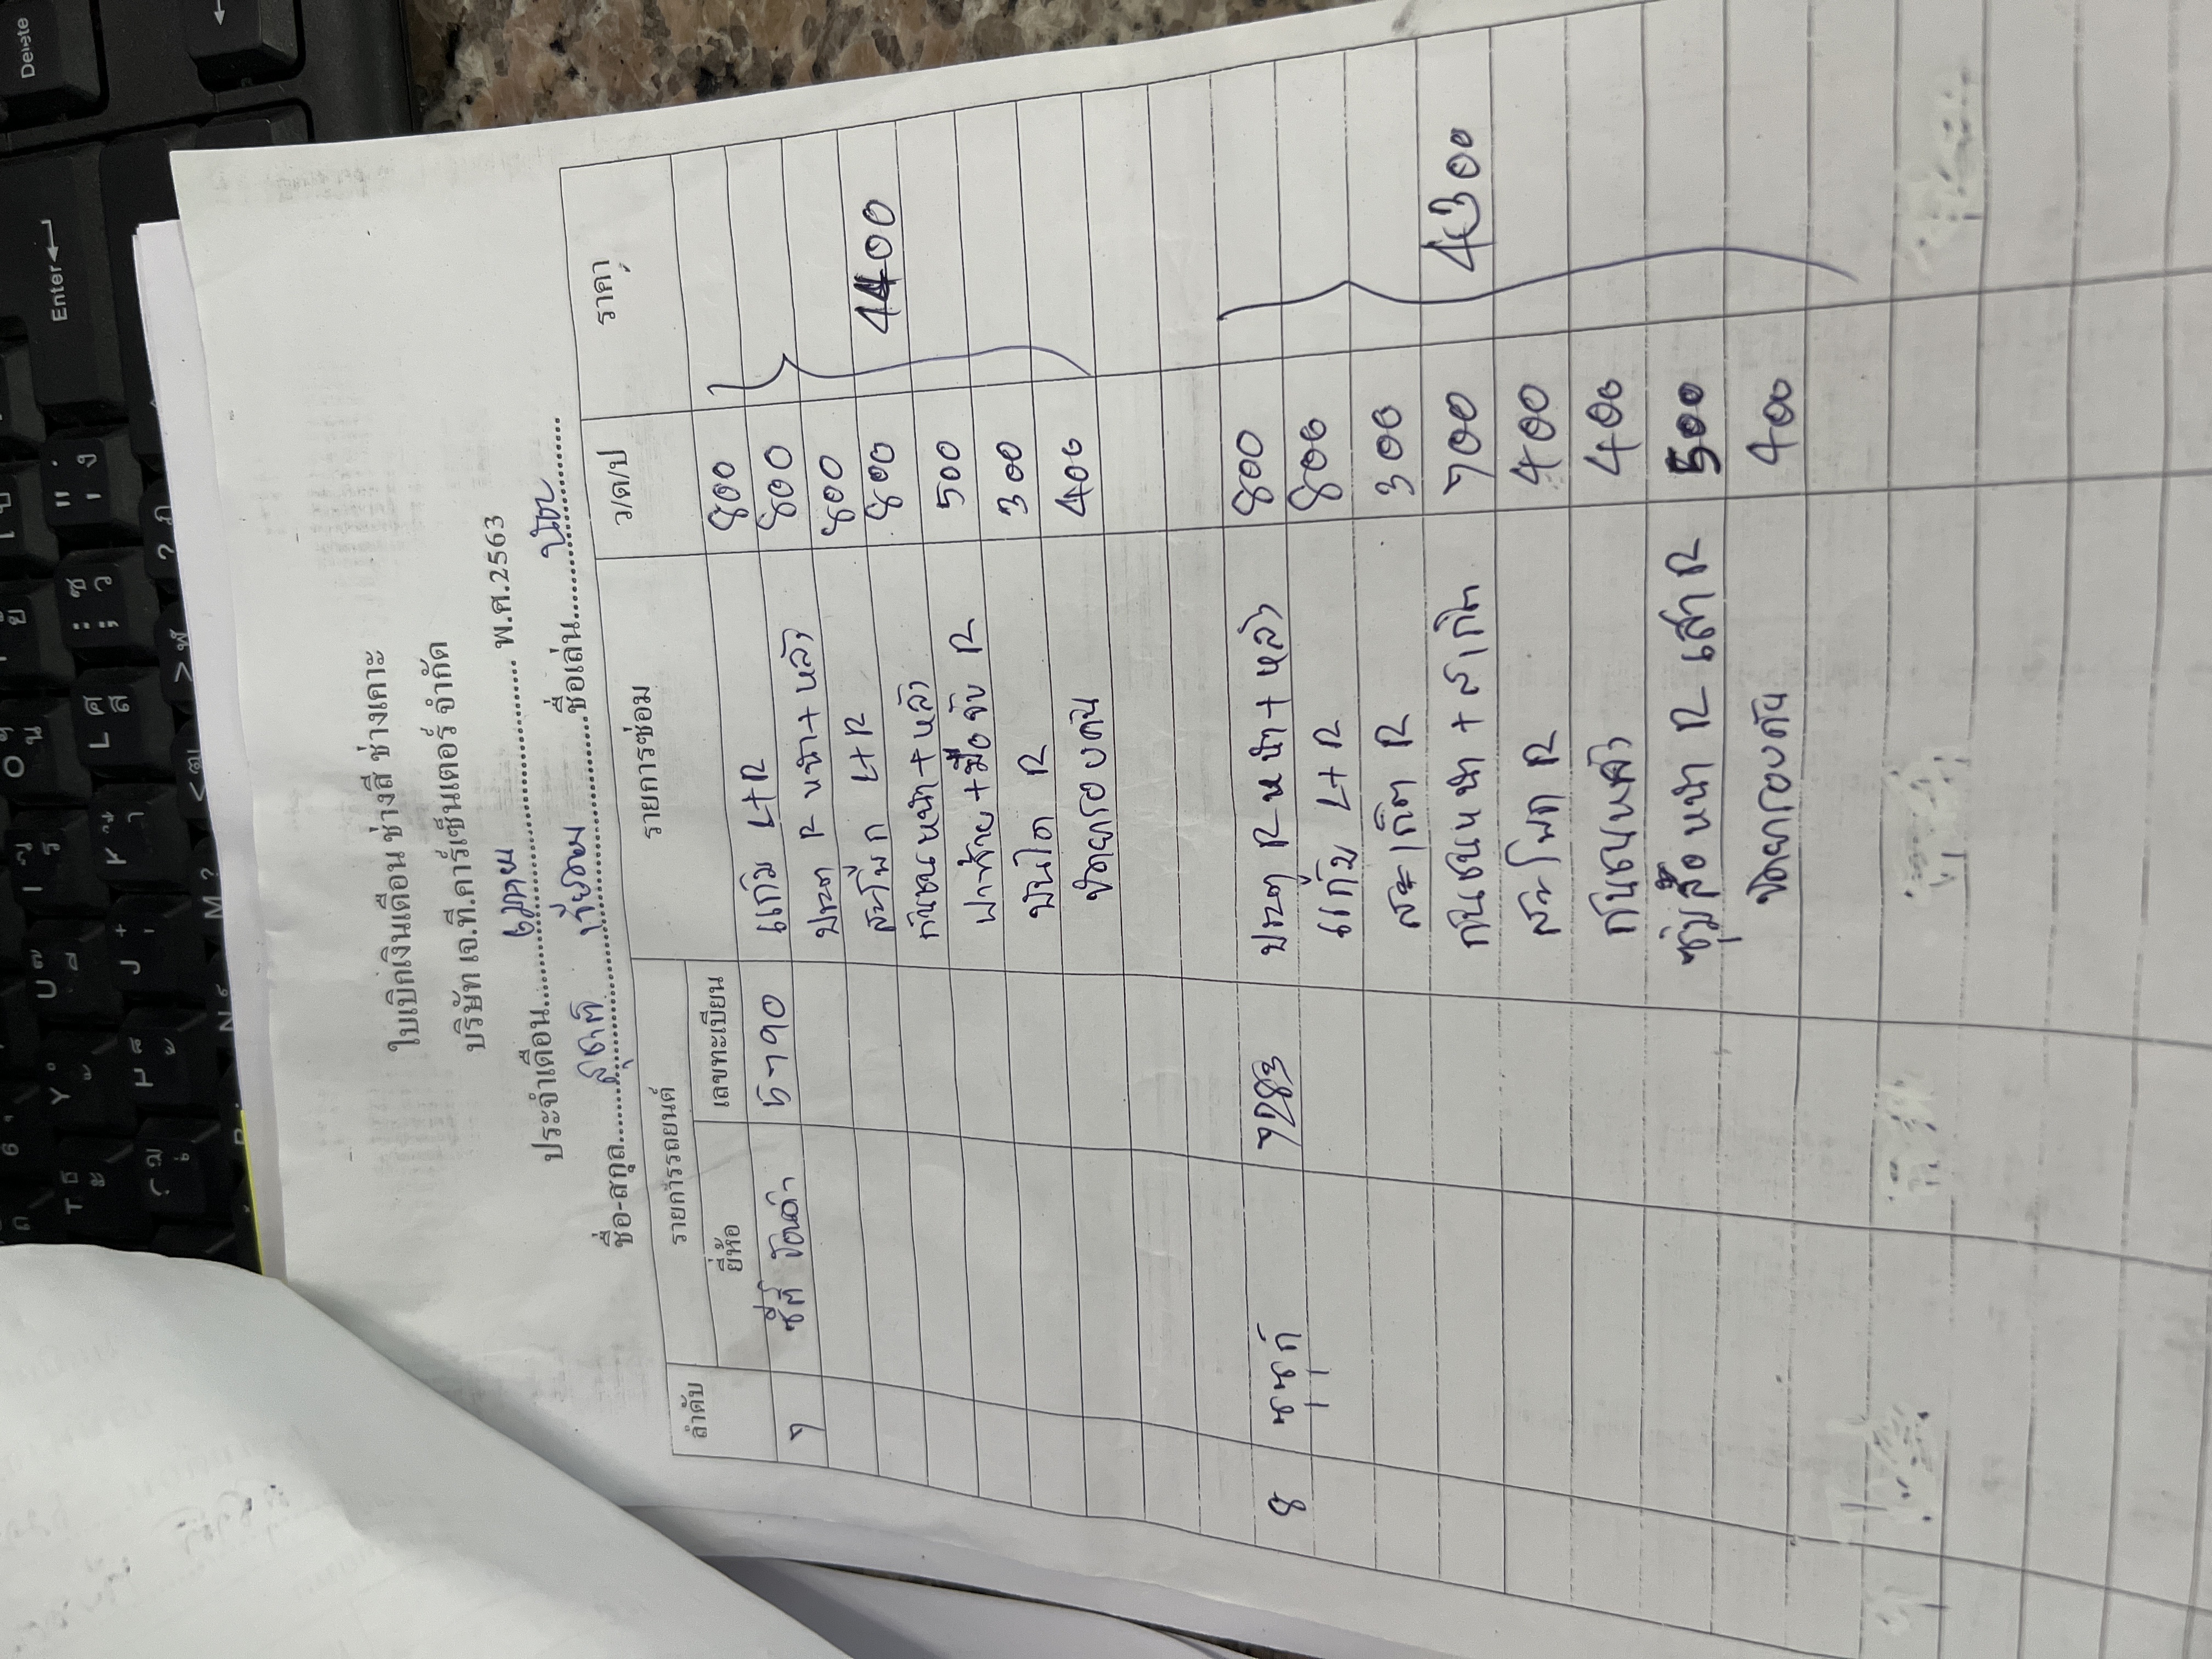 ใบเบิกเงินเดือน ช่างสี ช่างเคาะ
บริษัท เจ.ที.คาร์เซ็นเตอร์ จำกัด
ประจำเดือน เมษายน พ.ศ.2563
ชื่อ-สกุล สุชาติ ชื่อเล่น
ลำดับ รายการรถยนต์ รายการซ่อม ว/ด/ป ราคา
ยี่ห้อ เลขทะเบียน
7 ซิตี้ 5790 แก้ม L+R 800
ประตู R หน้า + หลัง 800
สะโพก L+R 800
กันชนหน้า + หลัง 800
ฝาท้าย + มือจับ R 500
บันได R 300
ขัดยกรอบคัน 400
4400
8 ซูซูกิ 7283 ประตู R หน้า + หลัง 800
แก้ม L+R 800
สะเกิต R 300
กันชนหน้า + สเกิต 700
สะโพก R 400
กันชนหลัง 400
ซุ้มล้อหน้า R เสา R 500
ขัดยกรอบคัน 400
4300
Delete
Enter